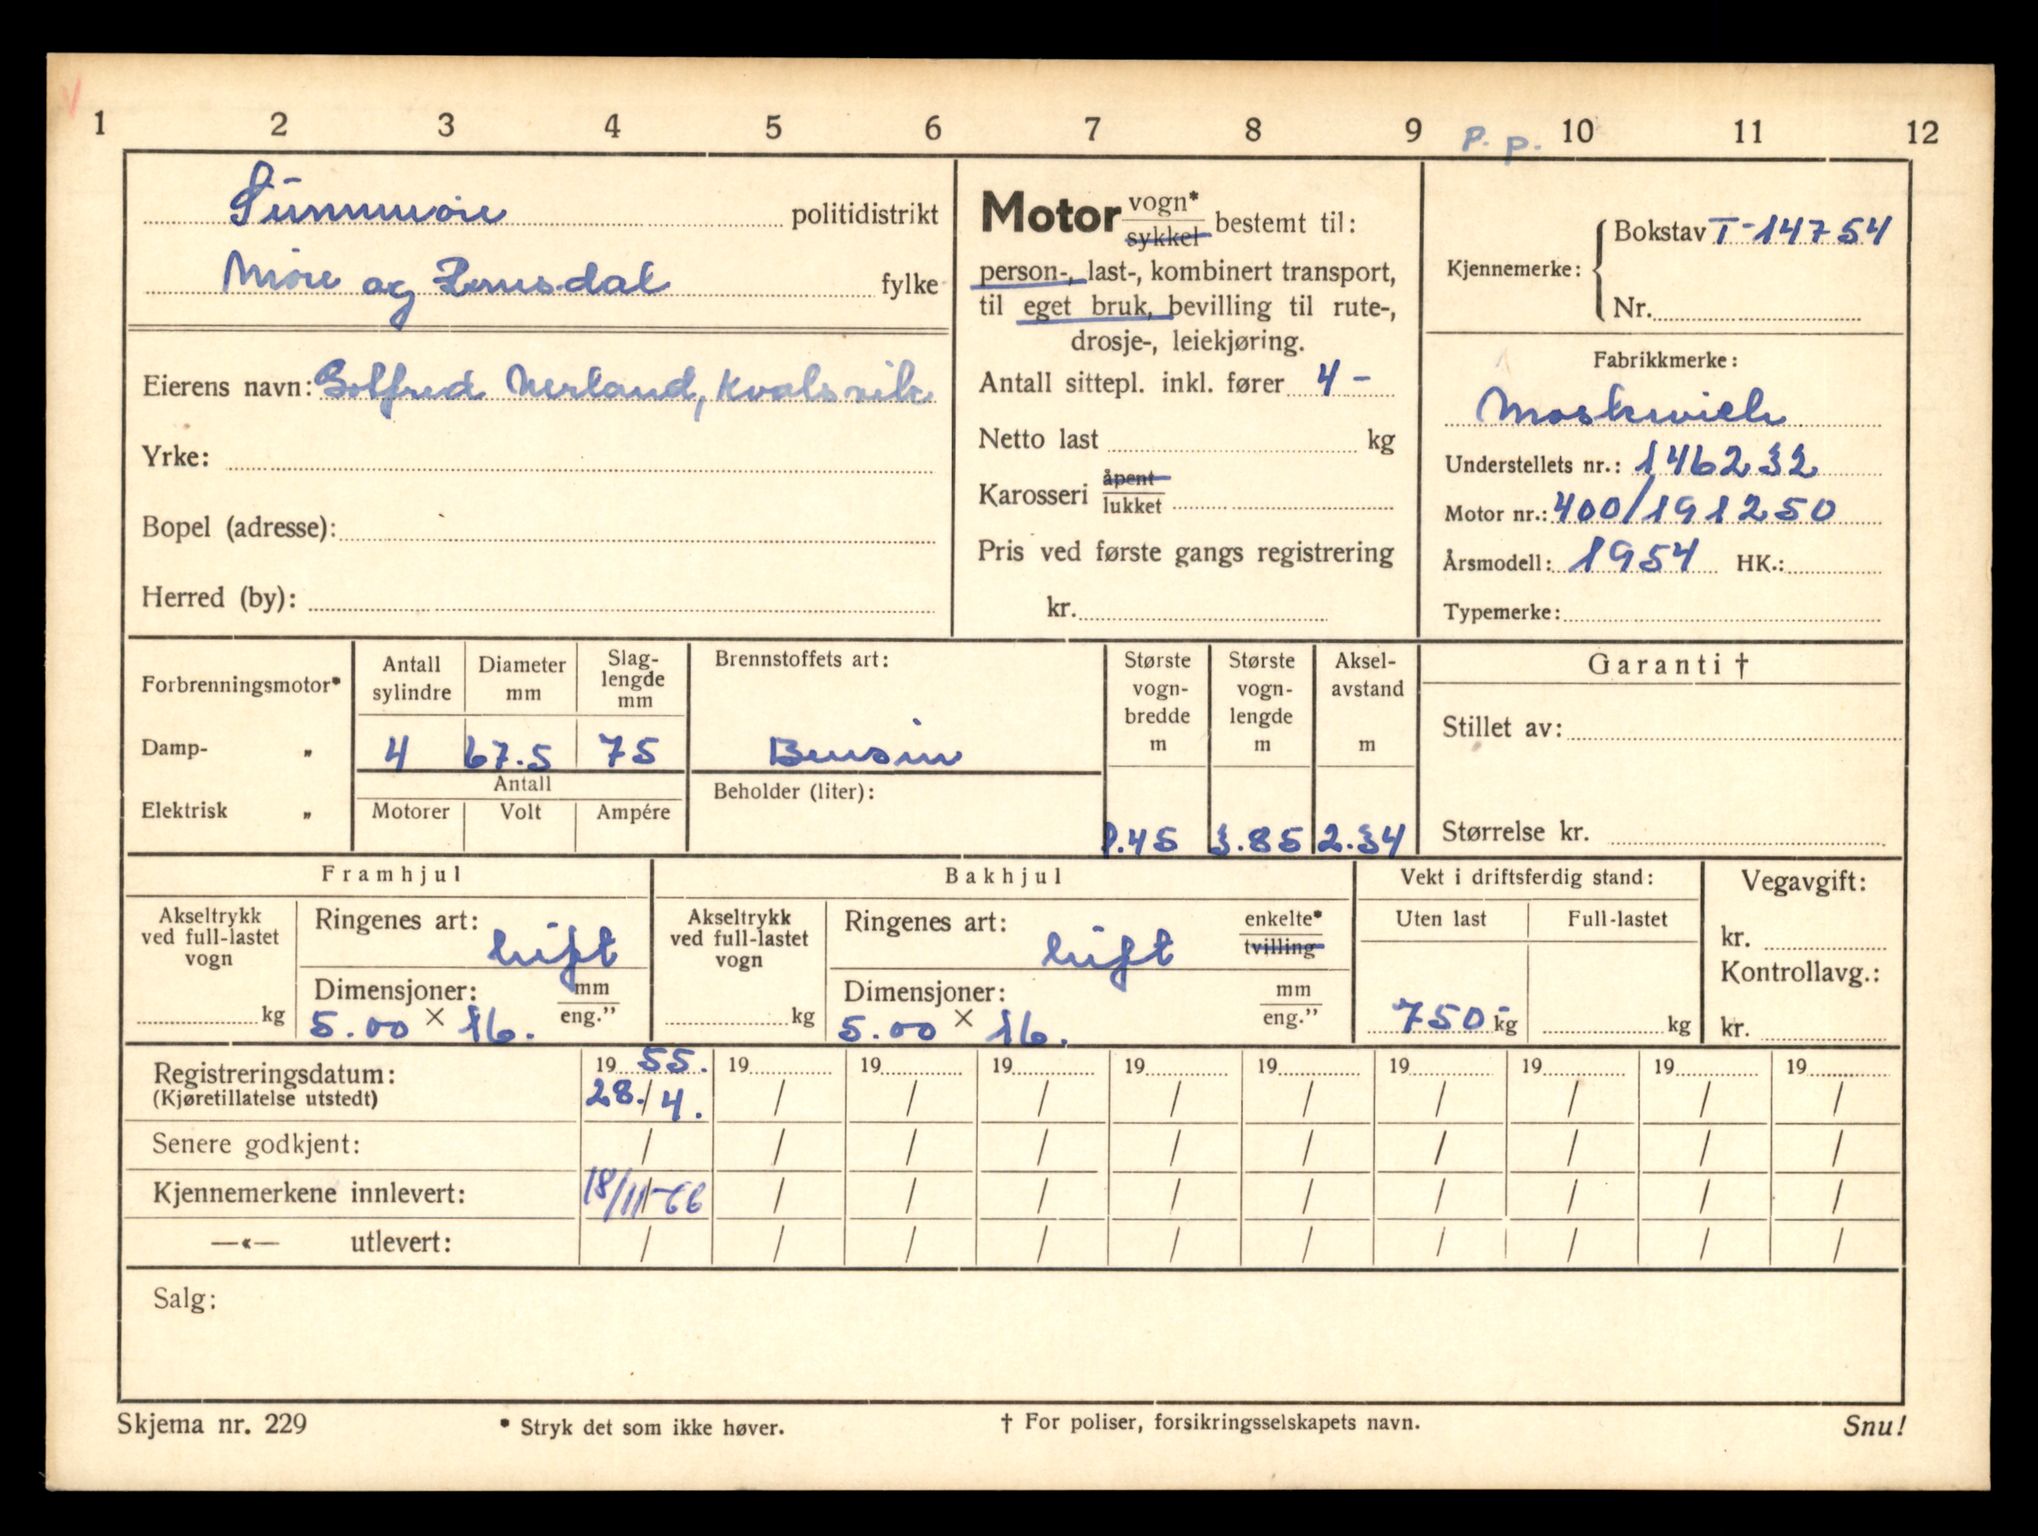 1 2 3 4 5 6 7 8 9 P. p. 10 11 12
Sunnmøre politidistrikt
Møre og Romsdal fylke
Eierens navn: Botfred Nerland, Kvalsvik
Yrke:
Bopel (adresse):
Herred (by):
Motor vogn* sykkel bestemt til:
person-, last-, kombinert transport,
til eget bruk, bevilling til rute-,
drosje-, leiekjøring.
Antall sittepl. inkl. fører 4 -
Netto last kg
Karosseri åpent lukket
Pris ved første gangs registrering
kr.
Kjennemerke: Bokstav T-14754
Nr.
Fabrikkmerke:
Moskwich
Understellets nr.: 146232
Motor nr.: 400/191250
Årsmodell: 1954 HK.:
Typemerke:
Forbrenningsmotor*
Damp- „
Elektrisk „
Antall sylindre Diameter mm Slag-lengde mm
4 67.5 75
Antall
Motorer Volt Ampére
Brennstoffets art:
Bensin
Beholder (liter):
Største vogn-bredde m Største vogn-lengde m Aksel-avstand m
1.45 3.85 2.34
Garanti †
Stillet av:
Størrelse kr.
Framhjul
Akseltrykk ved full-lastet vogn
kg
Ringenes art: luft
Dimensjoner: mm eng.”
5.00 × 16.
Bakhjul
Akseltrykk ved full-lastet vogn
kg
Ringenes art: luft enkelte* tvilling
Dimensjoner: mm eng.”
5.00 × 16.
Vekt i driftsferdig stand:
Uten last Full-lastet
750- kg kg
Vegavgift:
kr.
Kontrollavg.:
kr.
Registreringsdatum: 19 55. 19 19 19 19 19 19 19 19 19
(Kjøretillatelse utstedt) 28./4. / / / / / / / / /
Senere godkjent: / / / / / / / / / /
Kjennemerkene innlevert: 18/11-66 / / / / / / / / /
—«— utlevert: / / / / / / / / / /
Salg:
Skjema nr. 229 * Stryk det som ikke høver. † For poliser, forsikringsselskapets navn. Snu!